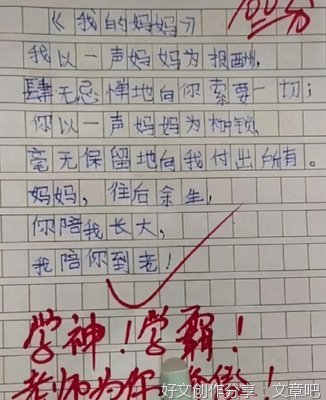 《我的妈妈》
100分
我以一声妈妈为报酬,
肆无忌惮地向你索要一切;
你以一声妈妈为枷锁,
毫无保留地向我付出所有。
妈妈,往后余生,
你陪我长大,
我陪你到老!
学神!学霸!
老师为你!
好文创作分享:文章吧